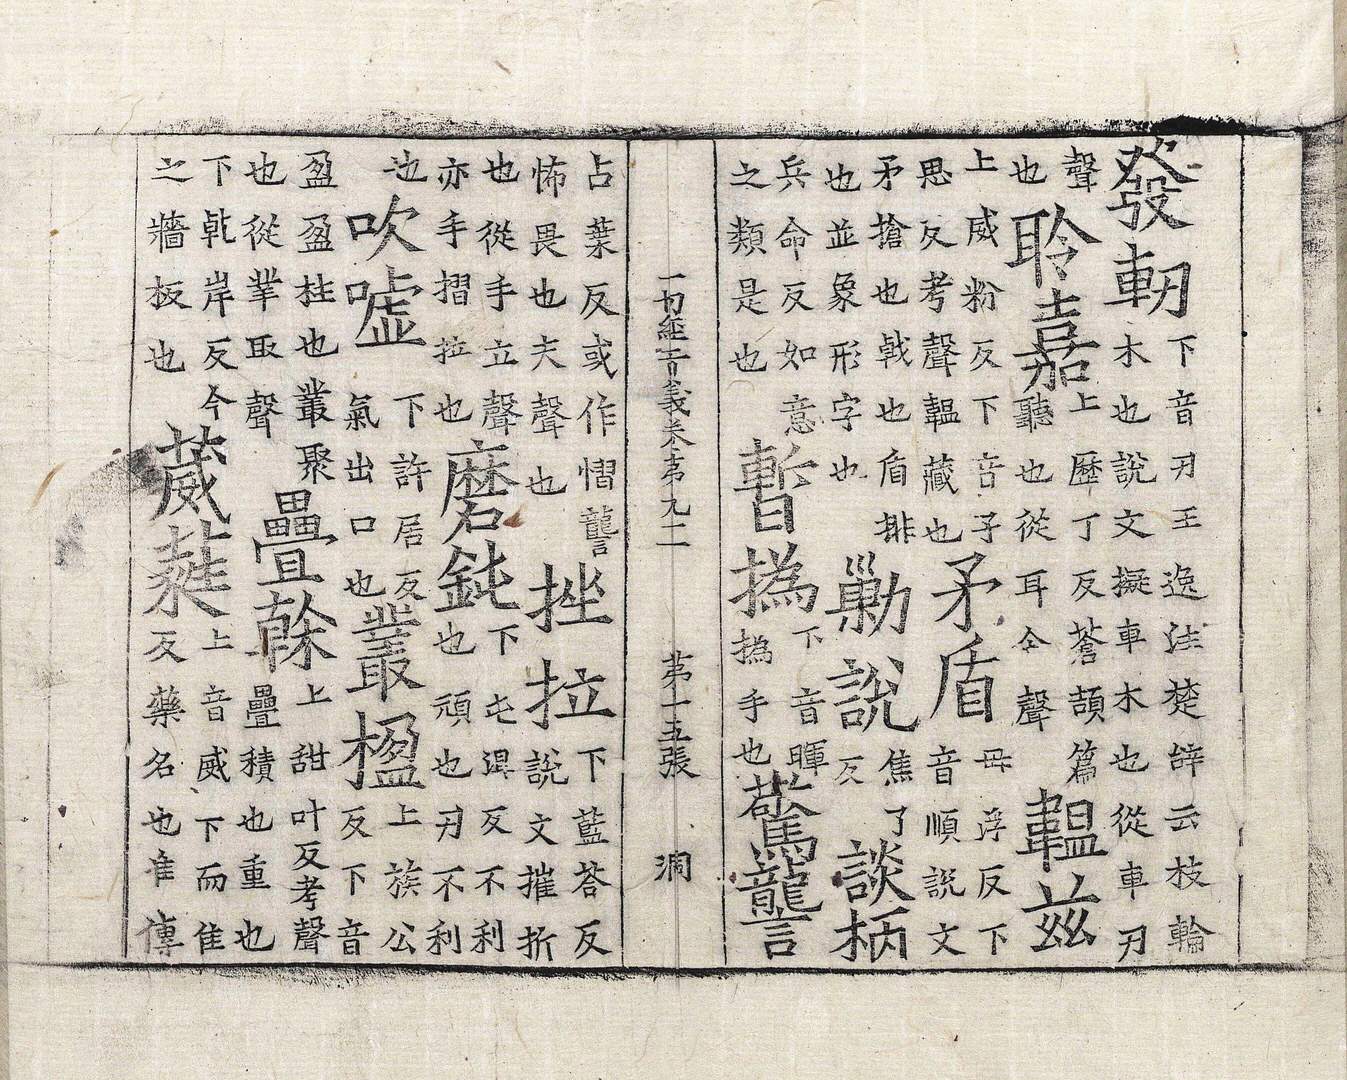 發軔下音刃王逸注楚辞云枝輪木也說文擬車木也從車刃
聲也聆嘉上歷丁反蒼頡篇聽也從耳令聲韞茲
上威粉反下音子思反考聲韞藏也矛盾毋浮反下音順說文
矛搶也戟也盾排也並象形字也勦說焦了反談柄
兵命反如意之類是也暫撝下音暉撝手也驚讋
一切經音義卷第九二 第十五張 洞
占葉反或作慴讋怖畏也夫聲也挫拉下藍荅反說文摧折
也從手立聲亦手摺拉也磨鈍下屯混反不利也頑也刃不利
也吹嘘下許居反氣出口也叢楹上族公反下音
盈盈柱也叢聚也從丵取聲疊榦上甜叶反考聲疊積也重也
下乹岸反今之牆板也葳蕤上音威下而隹反藥名也隹傳